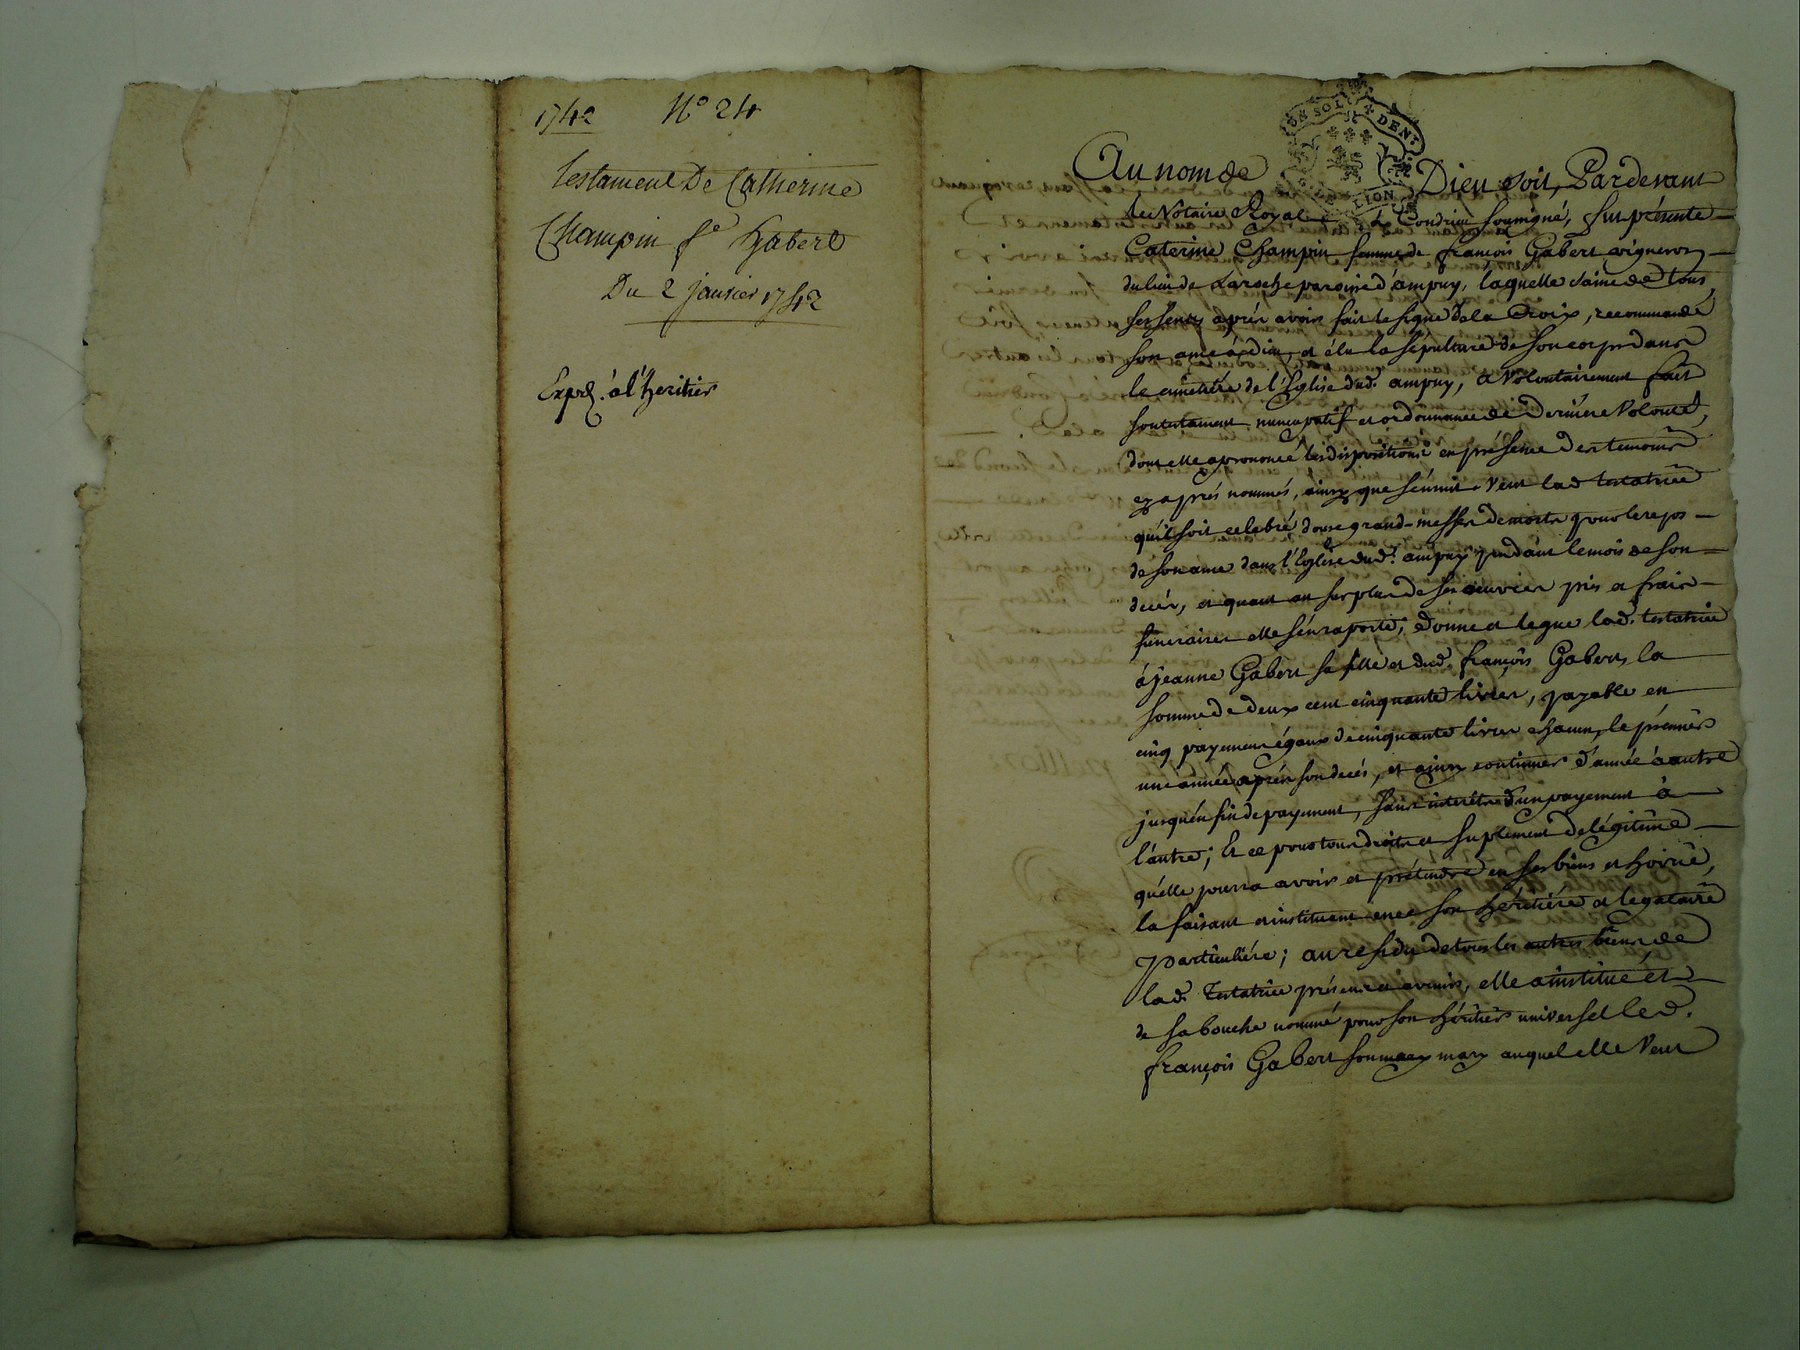 1742 N° 24
Testament De Catherine
Champin fe Gabert
Du 2 janvier 1742
Exped. à l'heritier
UN SOL * DENI
LION
Au nom de Dieu soit, Pardevant
le Notaire Royal à Condrieu soussigné, fut présente
Caterine Champin femme de françois Gabert vigneron
du lieu de Laroche paroisse d'ampuy, laquelle saine de tous
ses sens, aprés avoir fait le signe de la Croix, recommandé
son ame à dieu, et élu la sépulture de son corps dans
le cimetiére de l'Eglise dud. ampuy, a volontairement fait
son testament nuncupatif et ordonnance de derniere volonté,
dont elle a prononcé les dispositions en présence des temoins
cy aprés nommés, ainsy que s'ensuit. Veut lad. testatrice
qu'il soit celebré douze grand-messes de morts pour le repos
de son ame dans l'Eglise dud. ampuy pendant le mois de son
decés, et quant au surplus de ses œuvres pies et frais
funeraires elle s'en raporte; donne et legue lad. testatrice
à jeanne Gabert sa fille et dud. françois Gabert, la
somme de deux cent cinquante livres, payable en
cinq payemens égaux de cinquante livres chacun, le premier
une année aprés son decés, et ainsy continuer d'année à autre
jusqu'en fin de payement, sans interêts d'un payement à
l'autre; Et ce pour tous droits et suplement de légitime
qu'elle pourra avoir et prétendre en ses biens et hoirie,
la faisant et instituant en ce son héritiére et legataire
particuliére; au residu de tous les autres biens de
lad. Testatrice présens et avenir, elle a institué et
de sa bouche nommé pour son héritier universel led.
françois Gabert son mary auquel elle veut